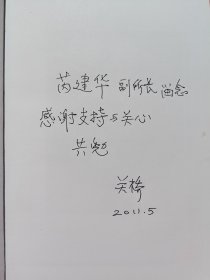 芮建华 副所长 留念
感谢支持与关心
共勉
关桥
2011.5